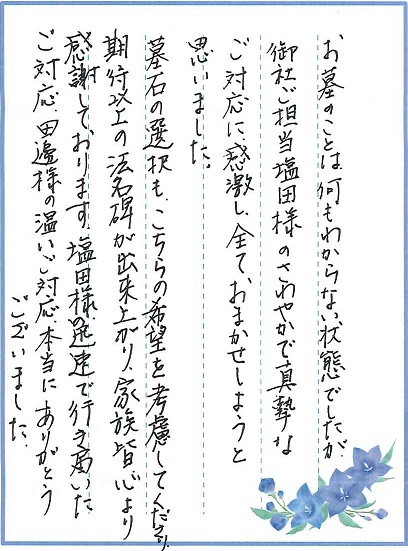 お墓のことは何もわからない状態でしたが、
御社ご担当塩田様のさわやかで真摯な
ご対応に感激し、全ておまかせしようと
思いました。
墓石の選択も、こちらの希望を考慮してくださり、
期待以上の法名碑が出来上がり、家族皆心より
感謝しております。塩田様の迅速で行き届いた
ご対応、田邊様の温いご対応本当にありがとう
ございました。